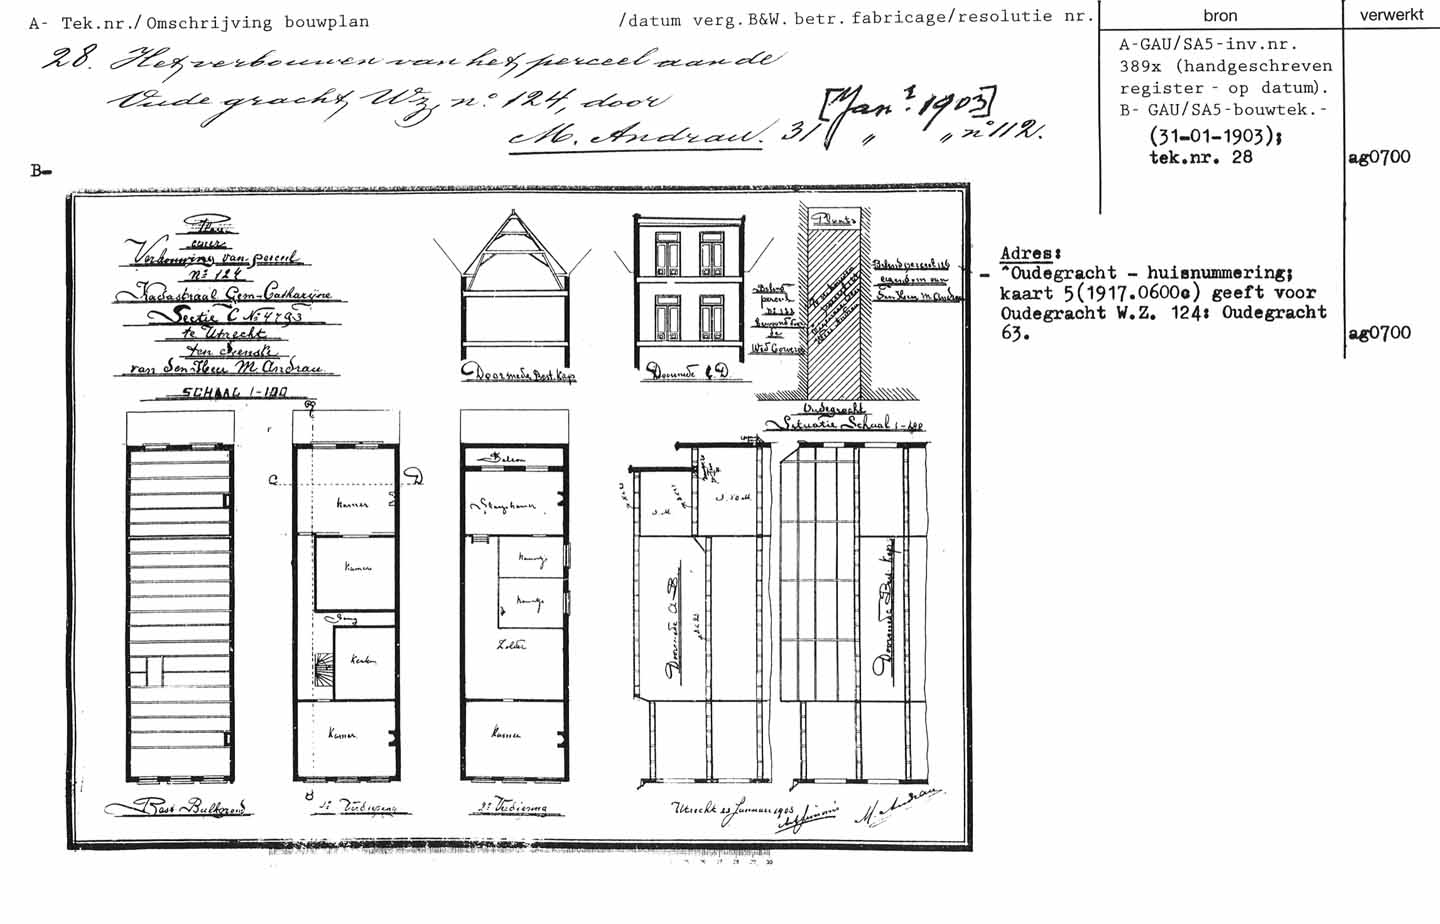 A- Tek.nr./Omschrijving bouwplan /datum verg.B&W. betr. fabricage/resolutie nr.
bron
verwerkt
28. Het verbouwen van het perceel aan de
Oude gracht, Wz, no. 124, door
M. Andrau. 31 [Jan. 1903] " " no 112.
A-GAU/SA5-inv.nr.
389x (handgeschreven
register - op datum).
B- GAU/SA5-bouwtek.-
(31-01-1903);
tek.nr. 28
ag0700
B-
Plan
voor
Verbouwing van perceel
No 124
Kadastraal Gem-Catharijne
Sectie C No 4793
te Utrecht
ten dienste
van den Heer M. Andrau
SCHAAL 1-100
Doorsnede Best. Kap
Doorsnede C D.
Plaats
Behoud
perceel
de
Wed
Behoud perceel 126
eigendom van
den Heer M. Andrau
Oudegracht
Situatie Schaal 1-
Adres:
- ^Oudegracht - huisnummering;
kaart 5(1917.0600c) geeft voor
Oudegracht W.Z. 124: Oudegracht
63.
ag0700
A
C
D
Kamer
Kamer
Gang
Keuken
Kamer
B
Balcon
Slaapkamer
Kamertje
Kamertje
Zolder
Kamer
Doorsnede A-B
Doorsnede Best. Kap.
Best. Balkgrond
1e Verdieping
2e Verdieping
Utrecht 23 Januari 1903
M. Andrau